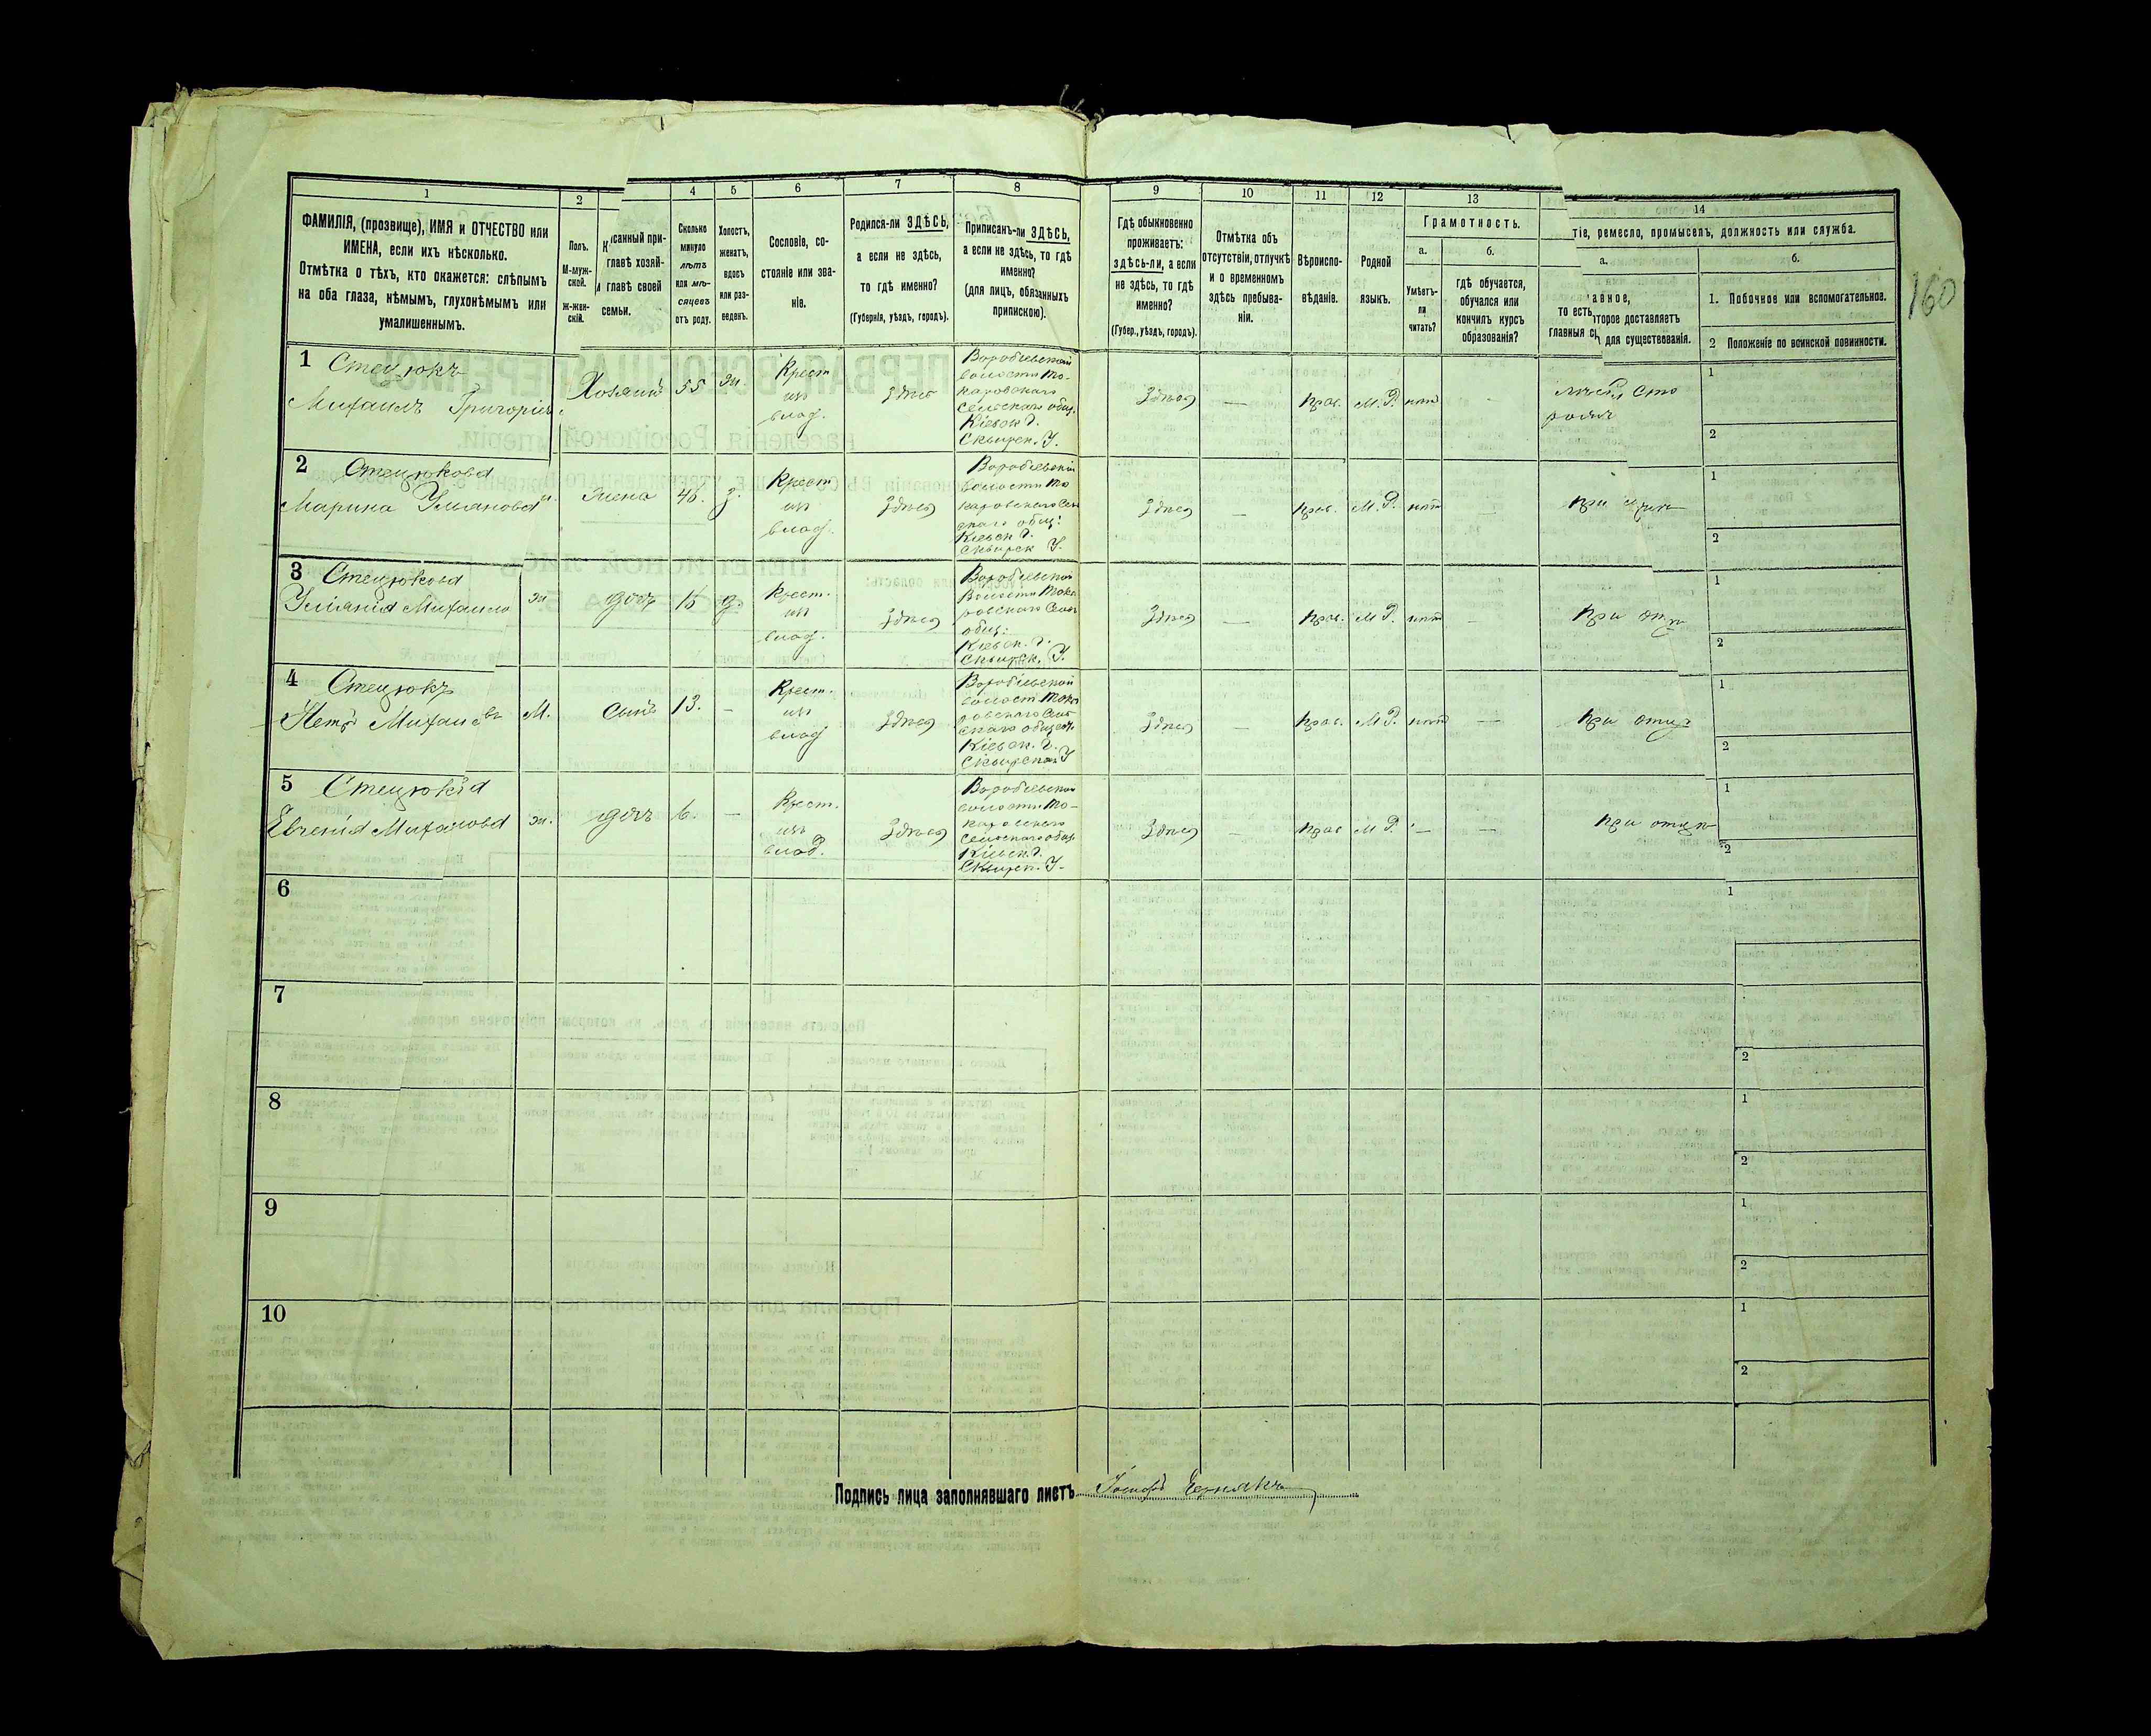 1
2
4
5
6
7
8
9
10
11
12
13
14
ФАМИЛІЯ, (прозвище), ИМЯ и ОТЧЕСТВО или
ИМЕНА, если ихъ нѣсколько.
Отмѣтка о тѣхъ, кто окажется: слѣпымъ
на оба глаза, нѣмымъ, глухонѣмымъ или
умалишеннымъ.
Полъ.
М-муж-
ской.
ж-жен-
скій.
К
санный при-
главѣ хозяй-
главѣ своей
семьи.
Сколько
минуло
лѣтъ
или мѣ-
сяцевъ
отъ роду.
Холостъ,
женатъ,
вдовъ
или раз-
веденъ.
Сословіе, со-
стояніе или зва-
ніе.
Родился-ли ЗДѢСЬ,
а если не здѣсь,
то гдѣ именно?
(Губернія, уѣздъ, городъ).
Приписанъ-ли ЗДѢСЬ,
а если не здѣсь, то гдѣ
именно?
(для лицъ, обязанныхъ
припискою).
Гдѣ обыкновенно
проживаетъ:
здѣсь-ли, а если
не здѣсь, то гдѣ
именно?
(Губер., уѣздъ, городъ).
Отмѣтка объ
отсутствіи, отлучкѣ
и о временномъ
здѣсь пребыва-
ніи.
Вѣроиспо-
вѣданіе.
Родной
языкъ.
Грамотность.
а.
Умѣетъ-
ли
читать?
б.
гдѣ обучается,
обучался или
кончилъ курсъ
образованія?
тіе, ремесло, промыселъ, должность или служба.
а.
авное,
то есть
торое доставляетъ
главныя
для существованія.
б.
1. Побочное или вспомогательное.
2 Положеніе по воинской повинности.
160
1 Стецюкъ
Михаилъ
Хозяинъ 55 ж. Крест
из
влад.
Здѣсь
Воробіевской
волости То-
каровскаго
Сельскаго общ.
Кіевск. Г.
Сквирск. У.
Здѣсь — прав. М. Р. нѣтъ
1
2
2 Стецюкова
Марина
жена 46. з. Крест
из
влад.
Здѣсь
Воробіевской
волости То
каровскаго Сел
скаго общ:
Кіевск Г.
Сквирск У.
Здѣсь — прав. М. Р. нѣтъ — при
1
2
3 Стецюкова
ж дочь 16 д. Крест.
из
влад.
Здѣсь
Воробіевской
Волости Тока
ровскаго Сел
общ:
Кіевск. Г.
Сквирск. У.
Здѣсь — прав. М Р. нѣтъ — при
1
2
4 Стецюкъ
Петръ
М. сынъ 13. — Крест.
из
влад
Здѣсь
Воробіевской
волост Тока
ровскаго Сель
скаго общест.
Кіевск. Г.
Сквирской У
Здѣсь — прав. М Р. нѣтъ — при отцѣ
1
2
5 Стецюкова
Евгенія
ж. дочь 6. — Крест.
из
влад.
Здѣсь
Воробіевской
волости То-
каровскаго
Сельскаго общ.
Кіевск. Г.
Сквирск. У.
Здѣсь — прав М Р. — — при отцѣ
1
2
6
1
7
2
8
1
2
9
1
2
10
1
2
Подпись лица заполнявшаго листъ